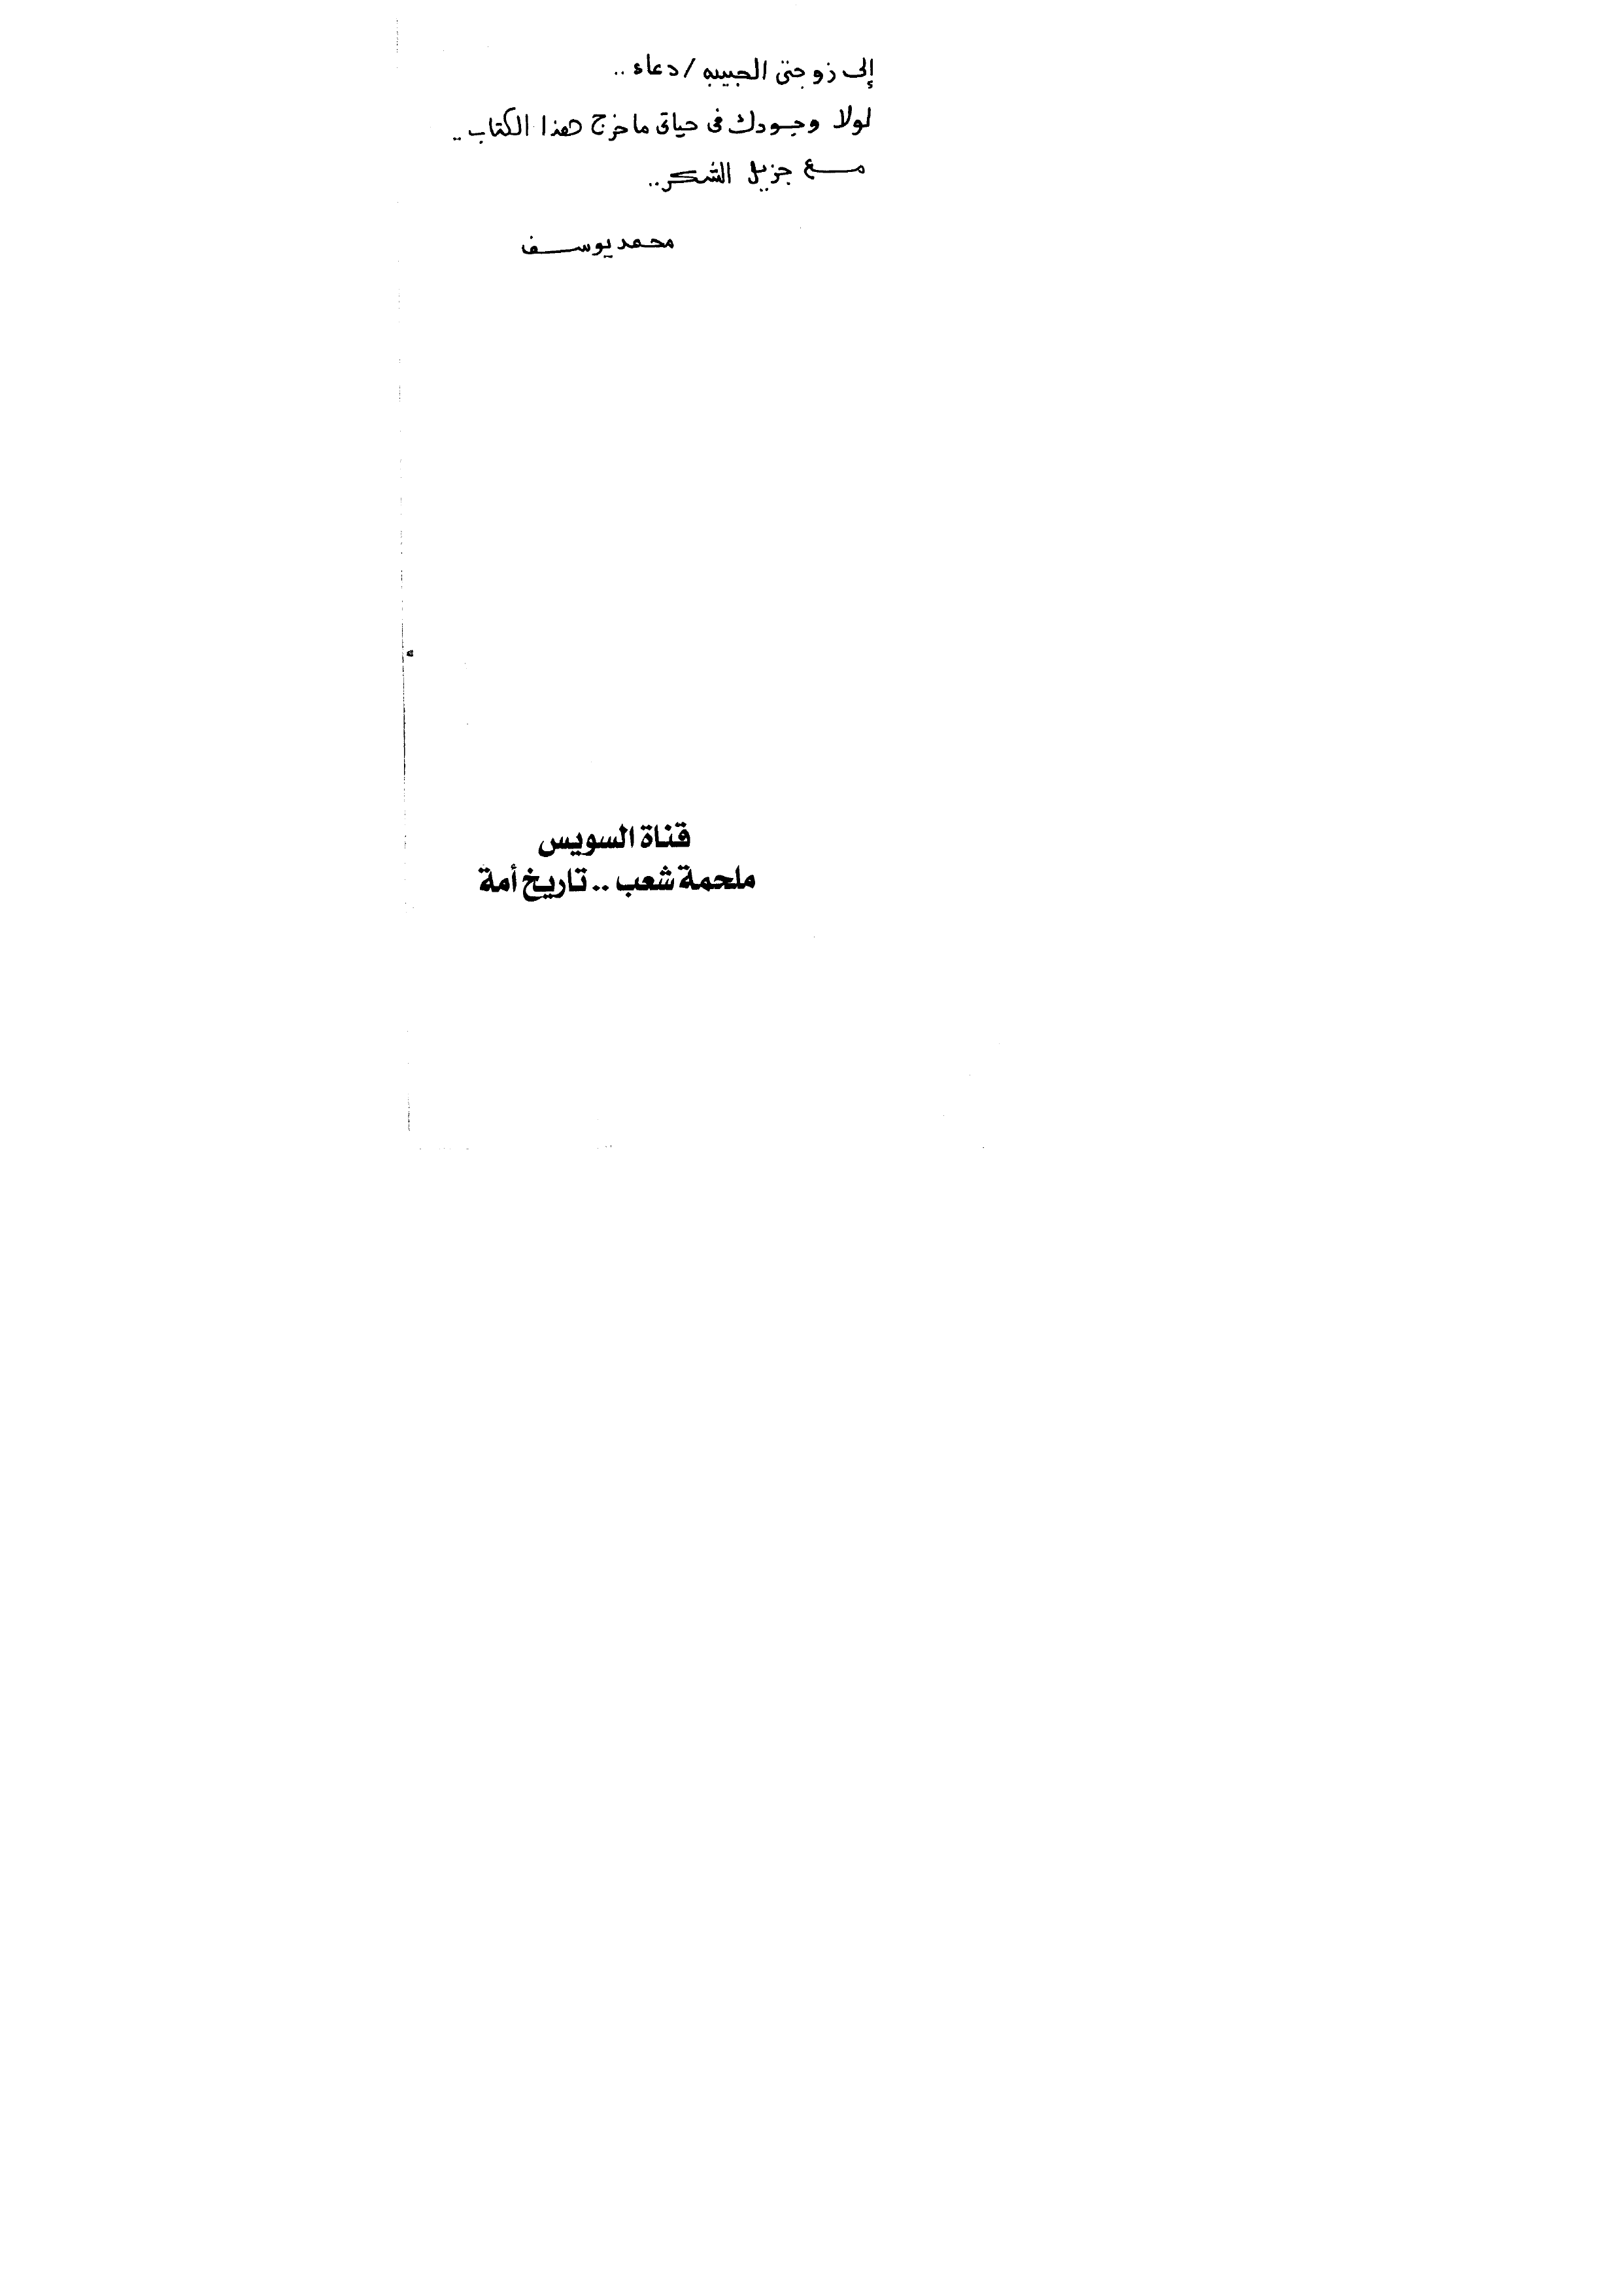 إلى زوجتى الحبيبه / دعاء ..
لولا وجودك فى حياتى ما خرج هذا الكتاب ..
مع جزيل الشكر ..
محمد يوسف
قناة السويس
ملحمة شعب .. تاريخ أمة